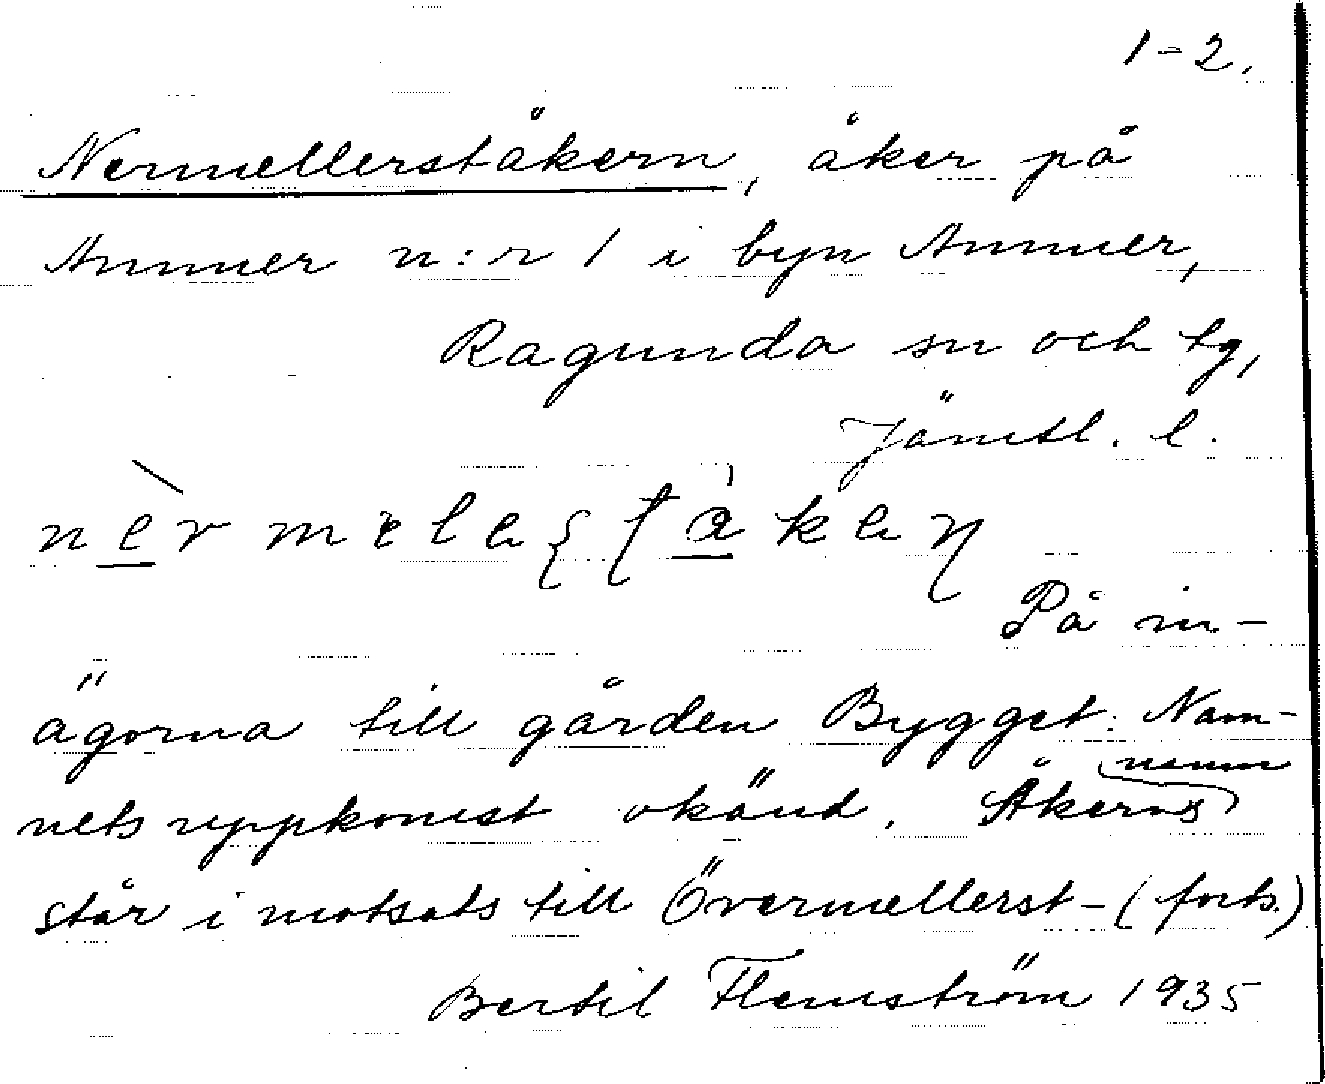 1-2.
Nermellerståkern, åker på
Ammer n:r 1 i byn Ammer,
Ragunda sn och tg,
Jämtl. l.
På in-
ägorna till gården Bygget. Nam-
nets uppkomst okänd. Åkerns namn
står i motsats till Övermellerst- (forts.)
Bertil Flemström 1935